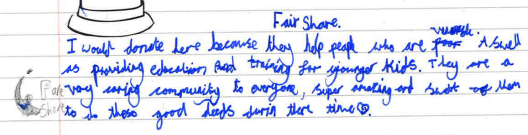 Fair Share.
I would donate here because they help people who are A swell
as providing education and training for younger kids. They are a
very caring community to everyone, super amazing and of them
to do these good deeds durin there time
Fare
Share